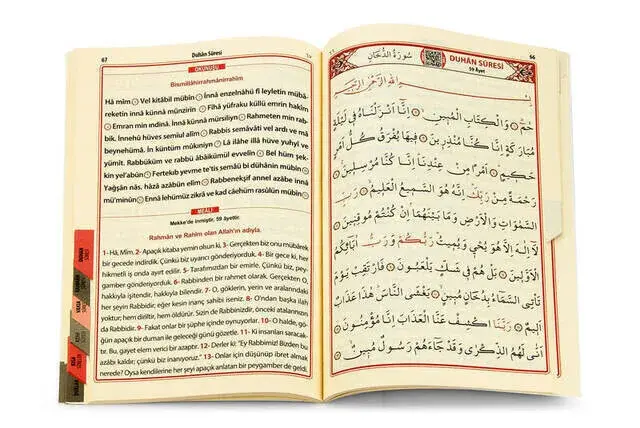 67
Duhân Sûresi
OKUNUŞU
Bismillâhirrahmânirrahîm
Hâ mîm Vel kitâbil mübîn İnnâ enzelnâhü fî leyletin mübâ-
reketin innâ künnâ münzirîn Fîhâ yüfraku küllü emrin hakîm
Emran min ındinâ. İnnâ künnâ mürsilîn Rahmeten min rab-
bik. İnnehü hüves semîul alîm Rabbis semâvâti vel ardı ve mâ
beynehümâ. İn küntüm mûkınîn Lâ ilâhe illâ hüve yuhyî ve
yümît. Rabbüküm ve rabbü âbâikümül evvelîn Bel hüm şek-
kin yel'abûn Fertekıb yevme te'tis semâü bi dühânin mübîn
Yağşân nâs, hâzâ azâbün elîm Rabbenekşif annel azâbe innâ
mü'minûn Ennâ lehümüz zikrâ ve kad câehüm rasûlün mübîn
MEÂLİ
Mekke'de inmiştir. 59 âyettir.
Rahmân ve Rahîm olan Allah'ın adıyla.
1- Hâ, Mîm. 2- Apaçık kitaba yemin olsun ki. 3- Gerçekten biz onu mübârek
bir gecede indirdik. Çünkü biz uyarıcı gönderiyorduk. 4- Bir gece ki, her
hikmetli iş onda ayırt edilir. 5- Tarafımızdan bir emirle. Çünkü biz, pey-
gamber gönderiyorduk. 6- Rabbinden bir rahmet olarak. Gerçekten O,
hakkıyla işitendir, hakkıyla bilendir. 7- O, göklerin, yerin ve aralarındaki
her şeyin Rabbidir; eğer kesin inanç sahibi iseniz. 8- O'ndan başka ilah
yoktur; hem diriltir, hem öldürür. Sizin de Rabbinizdir, önceki atalarınızın
da Rabbidir. 9- Fakat onlar bir şüphe içinde oynuyorlar. 10- O halde, gö-
ğün apaçık bir duman ile geleceği günü gözetle. 11- Ki insanları saracak-
tır. Bu, gayet elem verici bir azaptır. 12- Derler ki: "Ey Rabbimiz! Bizden bu
azâbı kaldır; çünkü biz inanıyoruz." 13- Onlar için düşünüp ibret almak
nerede? Oysa kendilerine her şeyi apaçık anlatan bir peygamber de geldi.
66
سُورَةُ الدُّخَانِ
DUHÂN SÛRESİ
59 Âyet
بِسْمِ اللّٰهِ الرَّحْمٰنِ الرَّحِيمِ
حٰمٓ وَالْكِتَابِ الْمُبِينِ اِنَّٓا اَنْزَلْنَاهُ فِى لَيْلَةٍ
مُبَارَكَةٍ اِنَّا كُنَّا مُنْذِرِينَ فِيهَا يُفْرَقُ كُلُّ اَمْرٍ
حَكِيمٍ اَمْرًا مِنْ عِنْدِنَا اِنَّا كُنَّا مُرْسِلِينَ
رَحْمَةً مِنْ رَبِّكَ اِنَّهُ هُوَ السَّمِيعُ الْعَلِيمُ رَبِّ
السَّمٰوَاتِ وَالْاَرْضِ وَمَا بَيْنَهُمَا اِنْ كُنْتُمْ مُوقِنِينَ
لَٓا اِلٰهَ اِلَّا هُوَ يُحْيِى وَيُمِيتُ رَبُّكُمْ وَرَبُّ اٰبَٓائِكُمُ
الْاَوَّلِينَ بَلْ هُمْ فِى شَكٍّ يَلْعَبُونَ فَارْتَقِبْ يَوْمَ
تَاْتِى السَّمَٓاءُ بِدُخَانٍ مُبِينٍ يَغْشَى النَّاسَ هٰذَا عَذَابٌ
اَلِيمٌ رَبَّنَا اكْشِفْ عَنَّا الْعَذَابَ اِنَّا مُؤْمِنُونَ
اَنّٰى لَهُمُ الذِّكْرٰى وَقَدْ جَٓاءَهُمْ رَسُولٌ مُبِينٌ